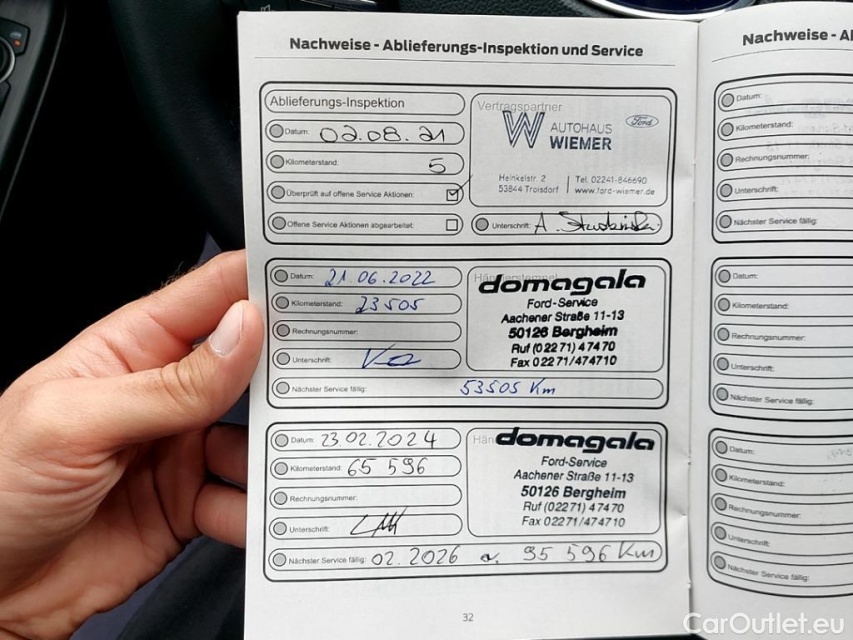 Nachweise - Ablieferungs-Inspektion und Service
Ablieferungs-Inspektion
Datum: 02.08.21
Kilometerstand: 5
Überprüft auf offene Service Aktionen:
Offene Service Aktionen abgearbeitet:
Vertragspartner
W AUTOHAUS WIEMER
Ford
Heinkelstr. 2
53844 Troisdorf
Tel. 02241-846690
www.ford-wiemer.de
Unterschrift:
Datum: 21.06.2022
Kilometerstand: 23505
Rechnungsnummer:
Unterschrift:
Nächster Service fällig: 53505 Km
domagala
Ford-Service
Aachener Straße 11-13
50126 Bergheim
Ruf (02271) 47470
Fax 02271/474710
Datum: 23.02.2024
Kilometerstand: 65 596
Rechnungsnummer:
Unterschrift:
Nächster Service fällig: 02.2026 o. 95 596 Km
domagala
Ford-Service
Aachener Straße 11-13
50126 Bergheim
Ruf (02271) 47470
Fax 02271/474710
32
Nachweise - Al
Datum:
Kilometerstand:
Rechnungsnummer:
Unterschrift:
Nächster Service fällig:
Datum:
Kilometerstand:
Rechnungsnummer:
Unterschrift:
Nächster Service fällig:
Datum:
Kilometerstand:
Rechnungsnummer:
Unterschrift:
Nächster Service fällig:
CarOutlet.eu